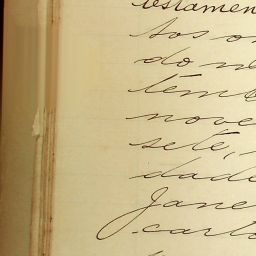 testamen
tos o
do ne
têm
nove
sete,
dade
Jane
carto